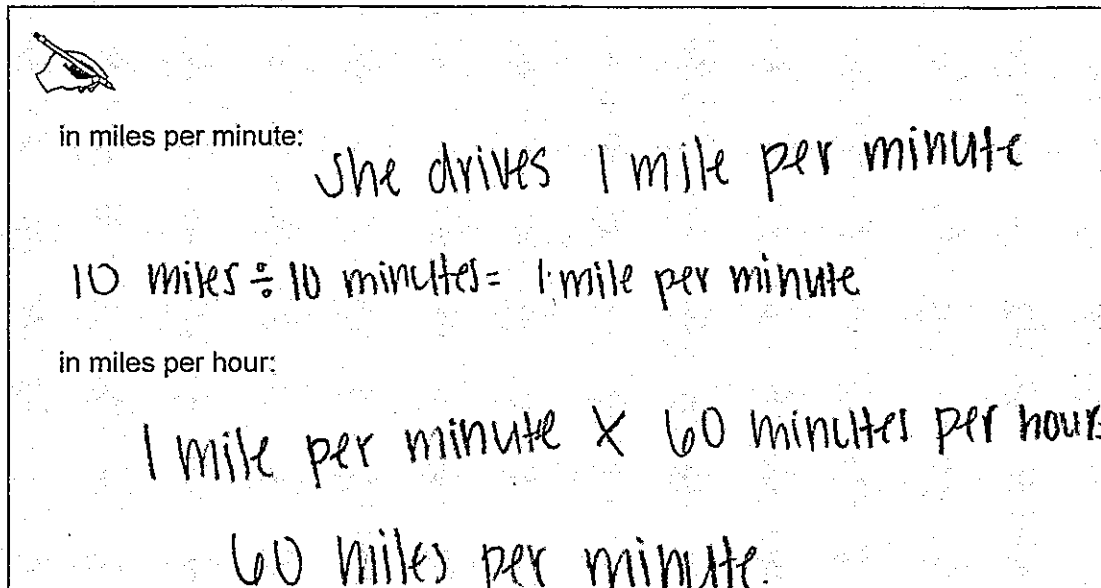 in miles per minute:
she drives 1 mile per minute
10 miles ÷ 10 minutes = 1 mile per minute
in miles per hour:
1 mile per minute X 60 minutes per hour
60 miles per minute.